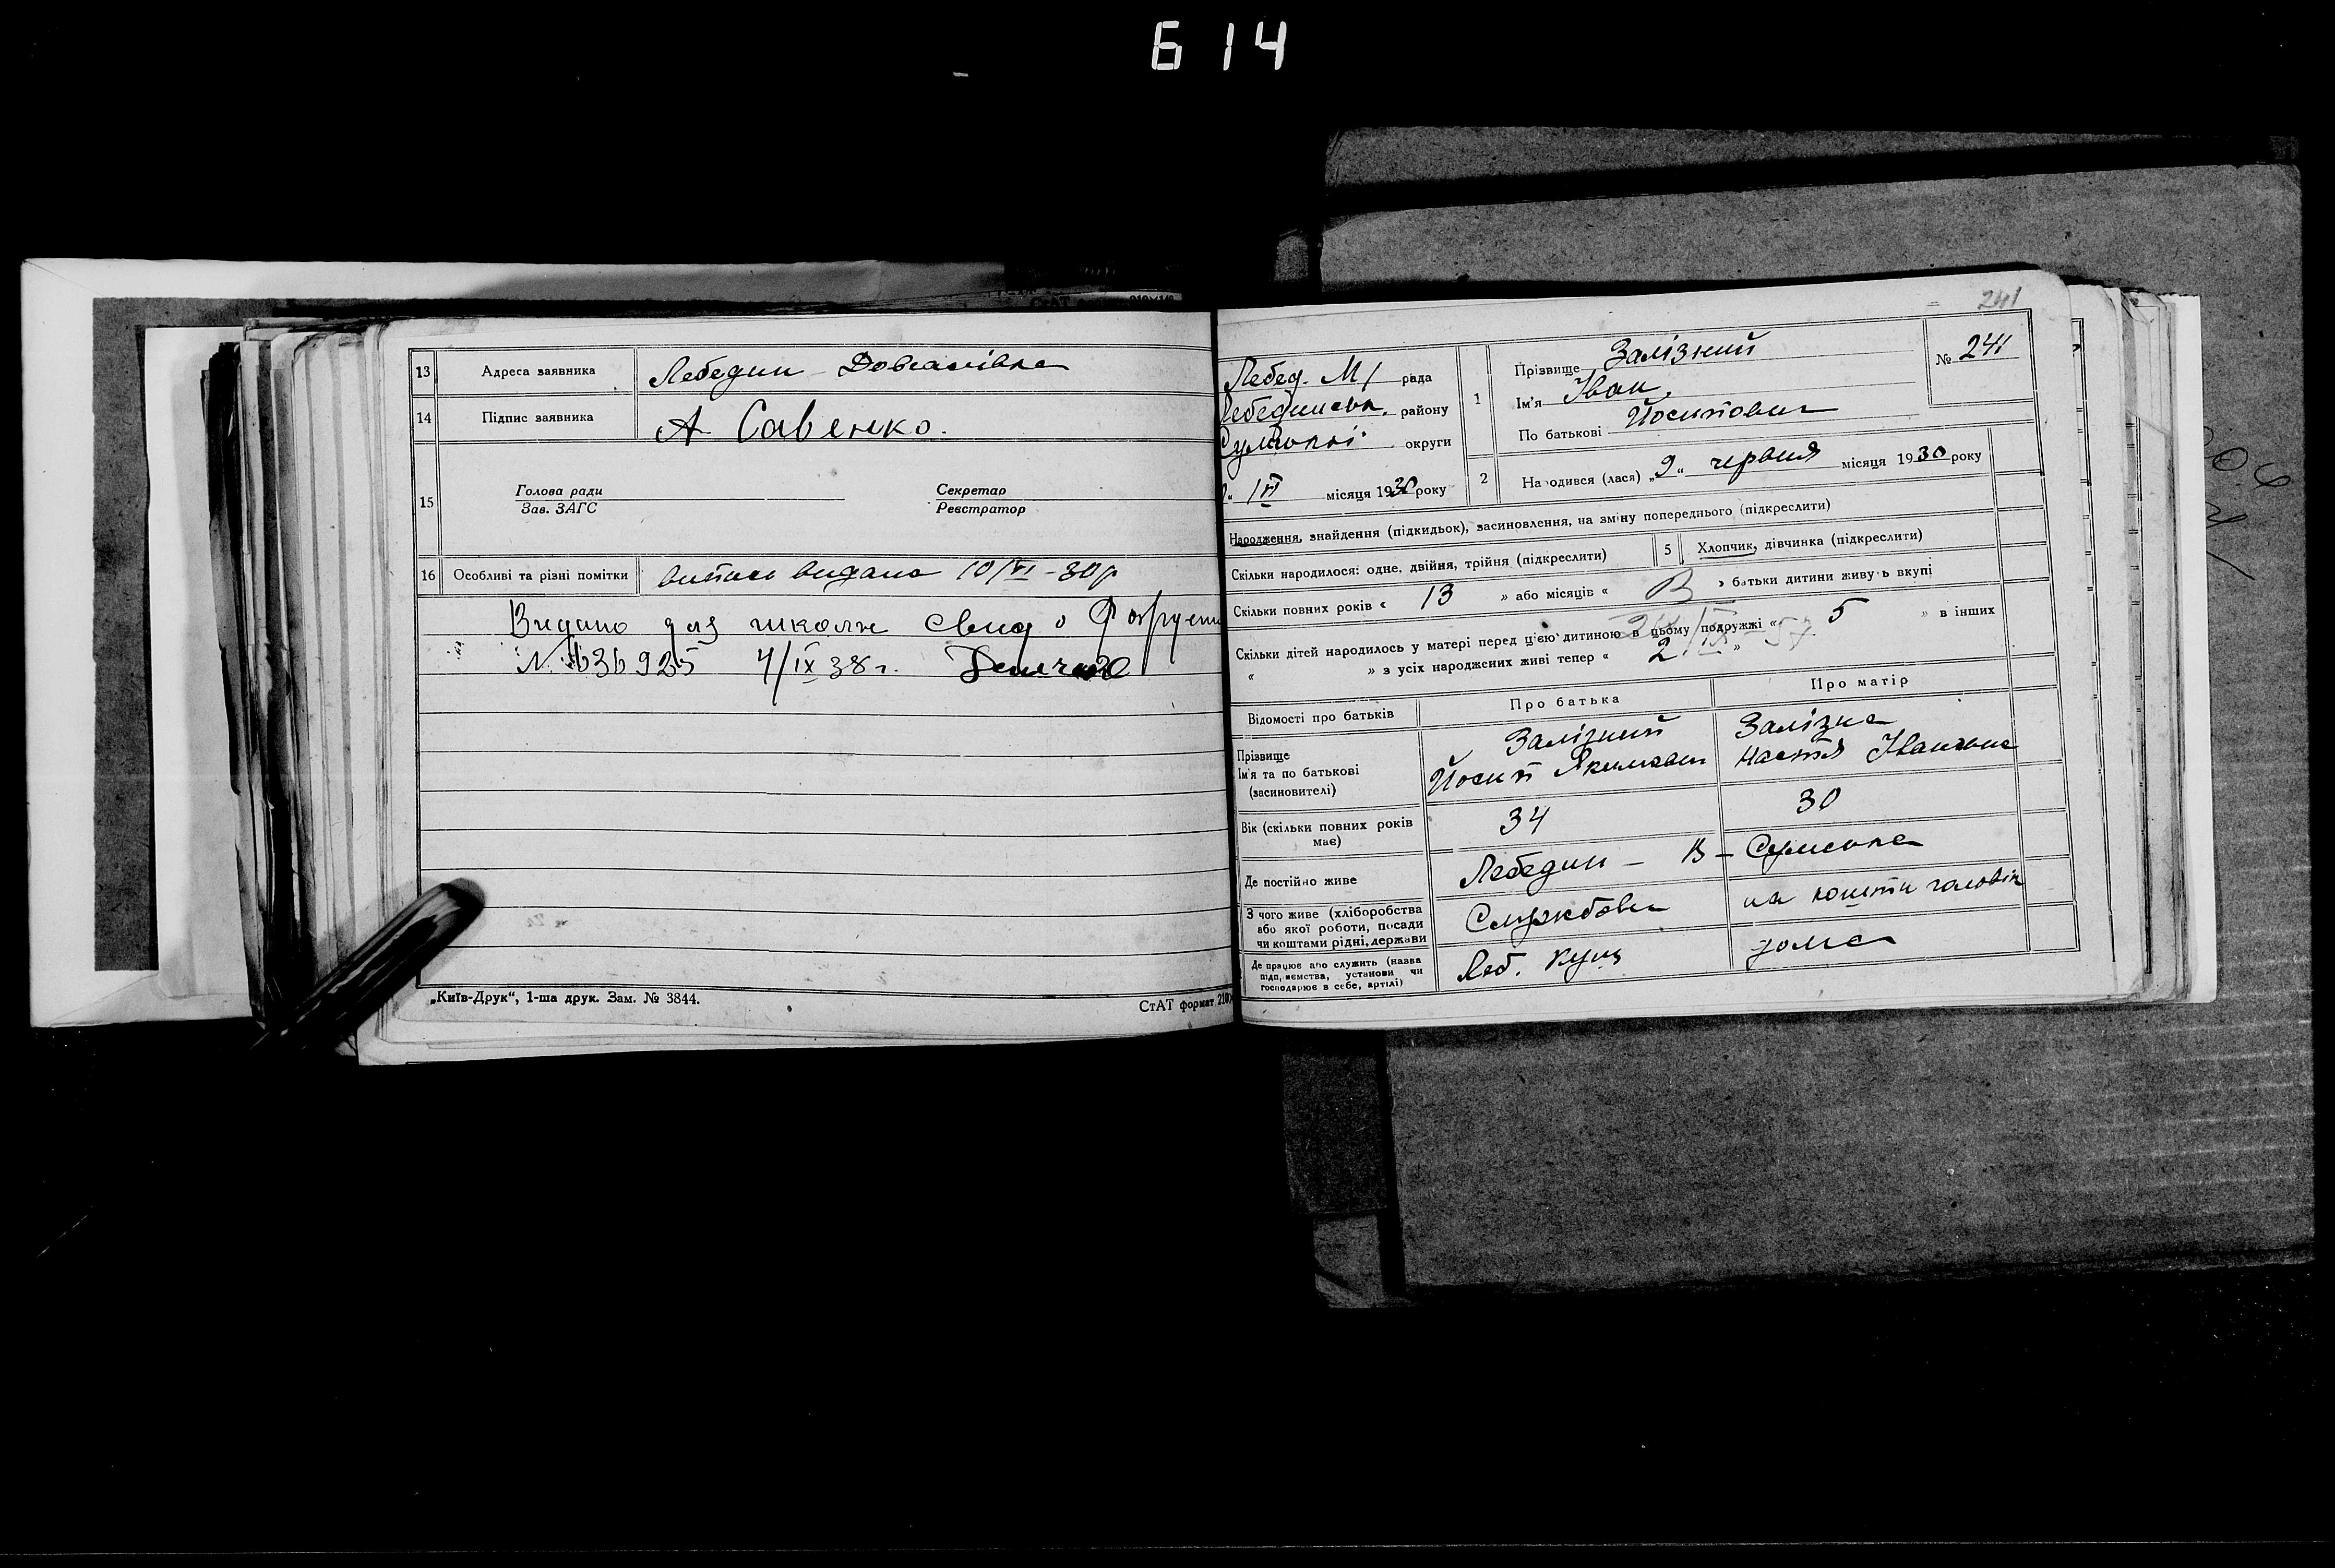 614
13 Адреса заявника Лебедин Довганівка
14 Підпис заявника А Савенко.
15 Голова ради Секретар
Зав. ЗАГС Реєстратор
16 Особливі та різні помітки випись видана 10/VI-30р
Видано для школи свид о
4/IX 38 г.
„Київ-Друк“, 1-ша друк. Зам. № 3844.
СтАТ формат 210
241
Лебед. М/ рада
Лебединськ. району
Сумської округи
місяця 1930 року
1 Прізвище Залізний № 241
Ім'я Іван
По батькові Йосипович
2 Народився (лася) „9“ червня місяця 1930 року
Народження, знайдення (підкидьок), засиновлення, на зміну попереднього (підкреслити)
Скільки народилося: одне, двійня, трійня (підкреслити) 5 Хлопчик, дівчинка (підкреслити)
Скільки повних років « 13 » або місяців « » батьки дитини живуть вкупі
Скільки дітей народилось у матері перед цією дитиною в цьому подружжі « 5 » в інших
« » з усіх народжених живі тепер « 2 »
Відомості про батьків Про батька Про матір
Прізвище Залізний Залізна
Ім'я та по батькові Йосип Якимович Настя Івановна
(засиновителі)
Вік (скільки повних років має) 34 30
Де постійно живе Лебедин - В - Сумська
З чого живе (хліборобства Службовец на кошти чоловік
або якої роботи, посади
чи коштами рідні, держави
Де працює або служить (назва Леб. дома
підприємства, установи чи
господарює в себе, артілі)